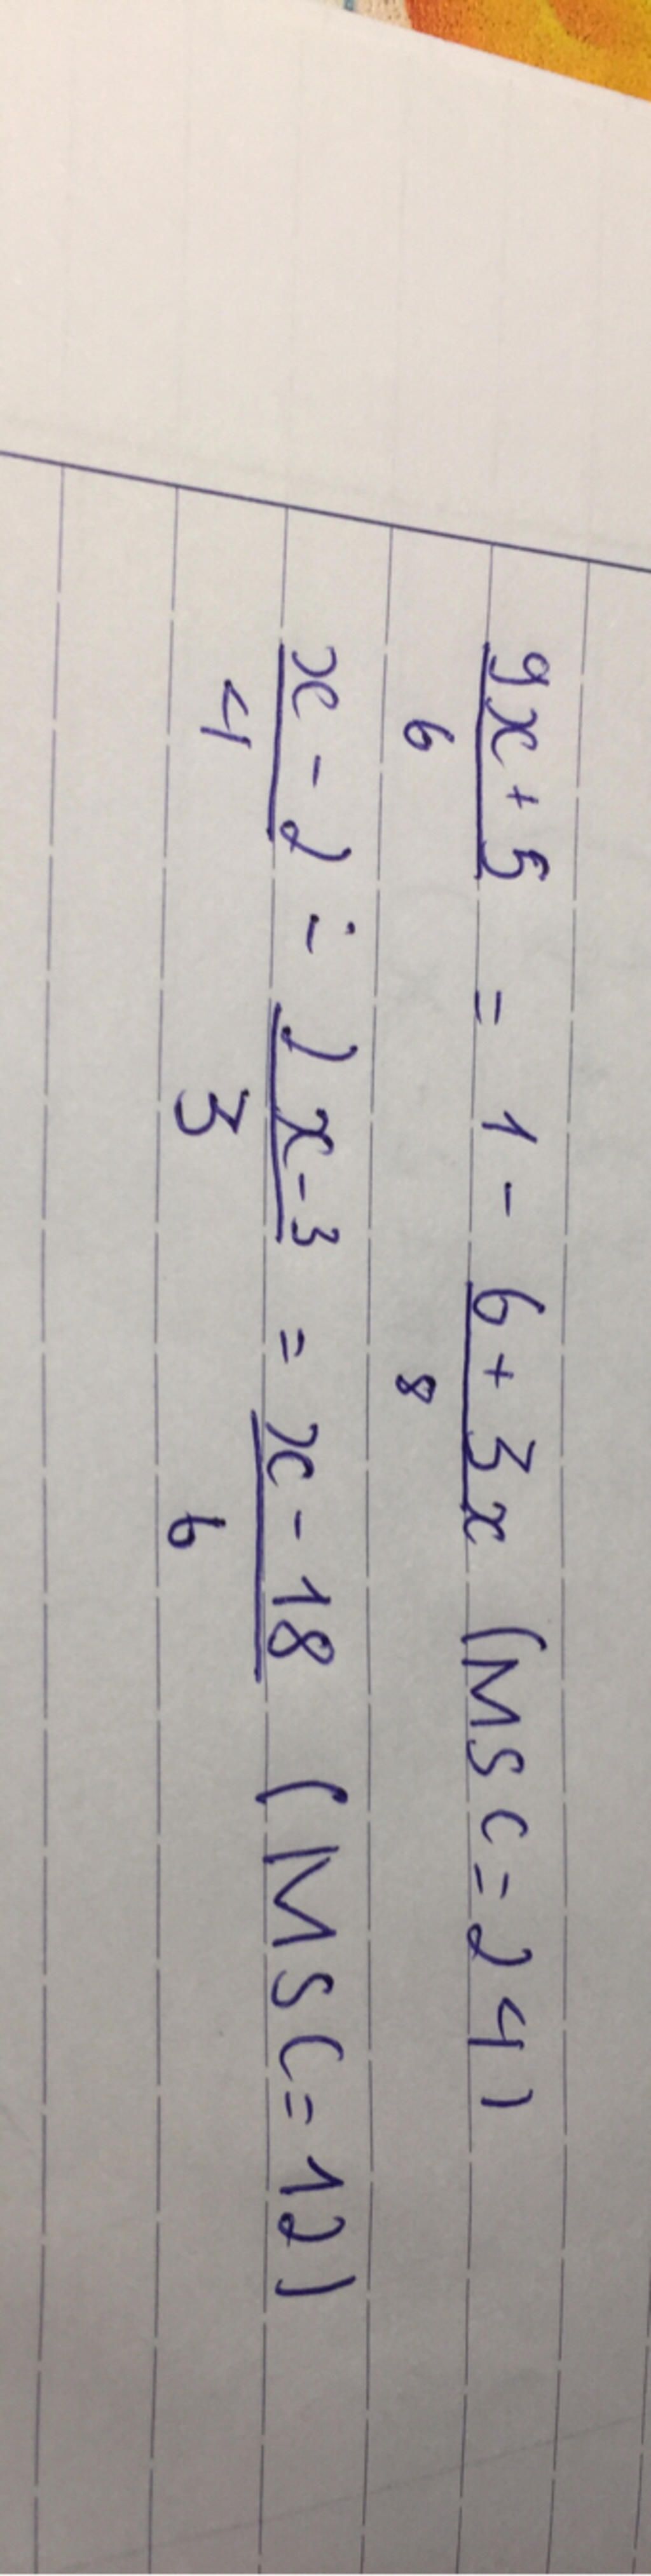 9x + 5 / 6 = 1 - 6 + 3x / 8 (MSC = 24)
x - 2 / 4 = 2x - 3 / 3 = x - 18 / 6 (MSC = 12)